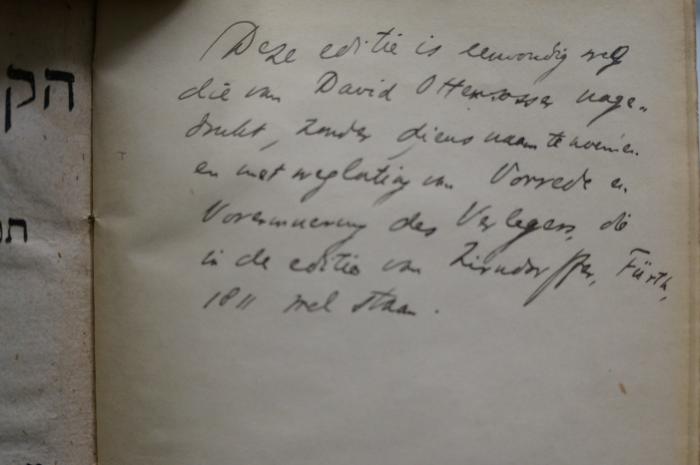 הק
תר
Deze editie is eenvoudig weg
die van David Ottensosser nage-
drukt, zonder diens naam te noemen
en met weglating van Vorrede en
Vorerinnerung des Verlegers, die
in de editie van Zirndorffer, Fürth,
1811 wel staan.